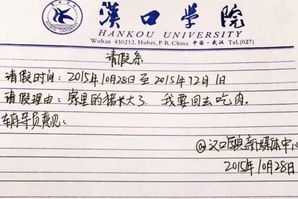 汉口学院
HANKOU UNIVERSITY
Wuhan 430212, Hubei, P.R. China 中国·武汉 Tel.(027)
请假条
请假时间：2015年10月28日至2015年12月1日
请假理由：家里的猪长大了 我要回去吃肉.
辅导员意见：
@汉口学院新媒体中心
2015年10月28日